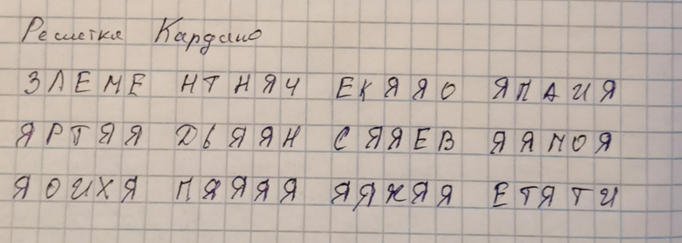 Решетка Кардано
ЗЛЕМЕ НТНЯЧ ЕКЯЯО ЯПАИЯ
ЯРТЯЯ ДЬЯЯН СЯЯЕВ ЯЯМОЯ
ЯОИХЯ ПЯЯЯЯ ЯЯЖЯЯ ЕТЯТИ